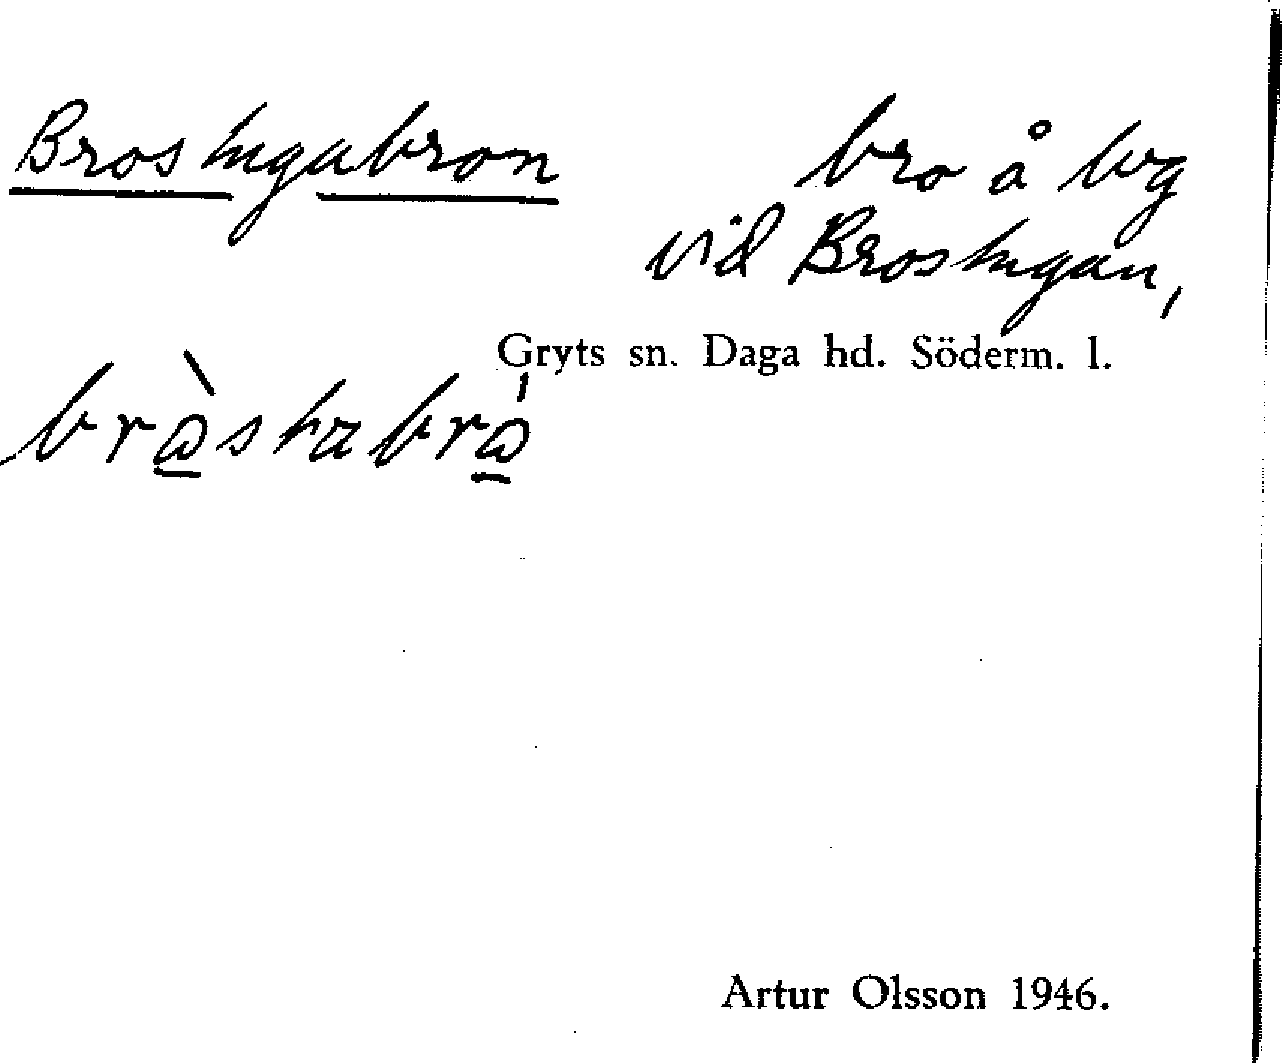 Brostugabron
bro å lvg
vid Brostugan,
Gryts sn. Daga hd. Söderm. l.
Artur Olsson 1946.